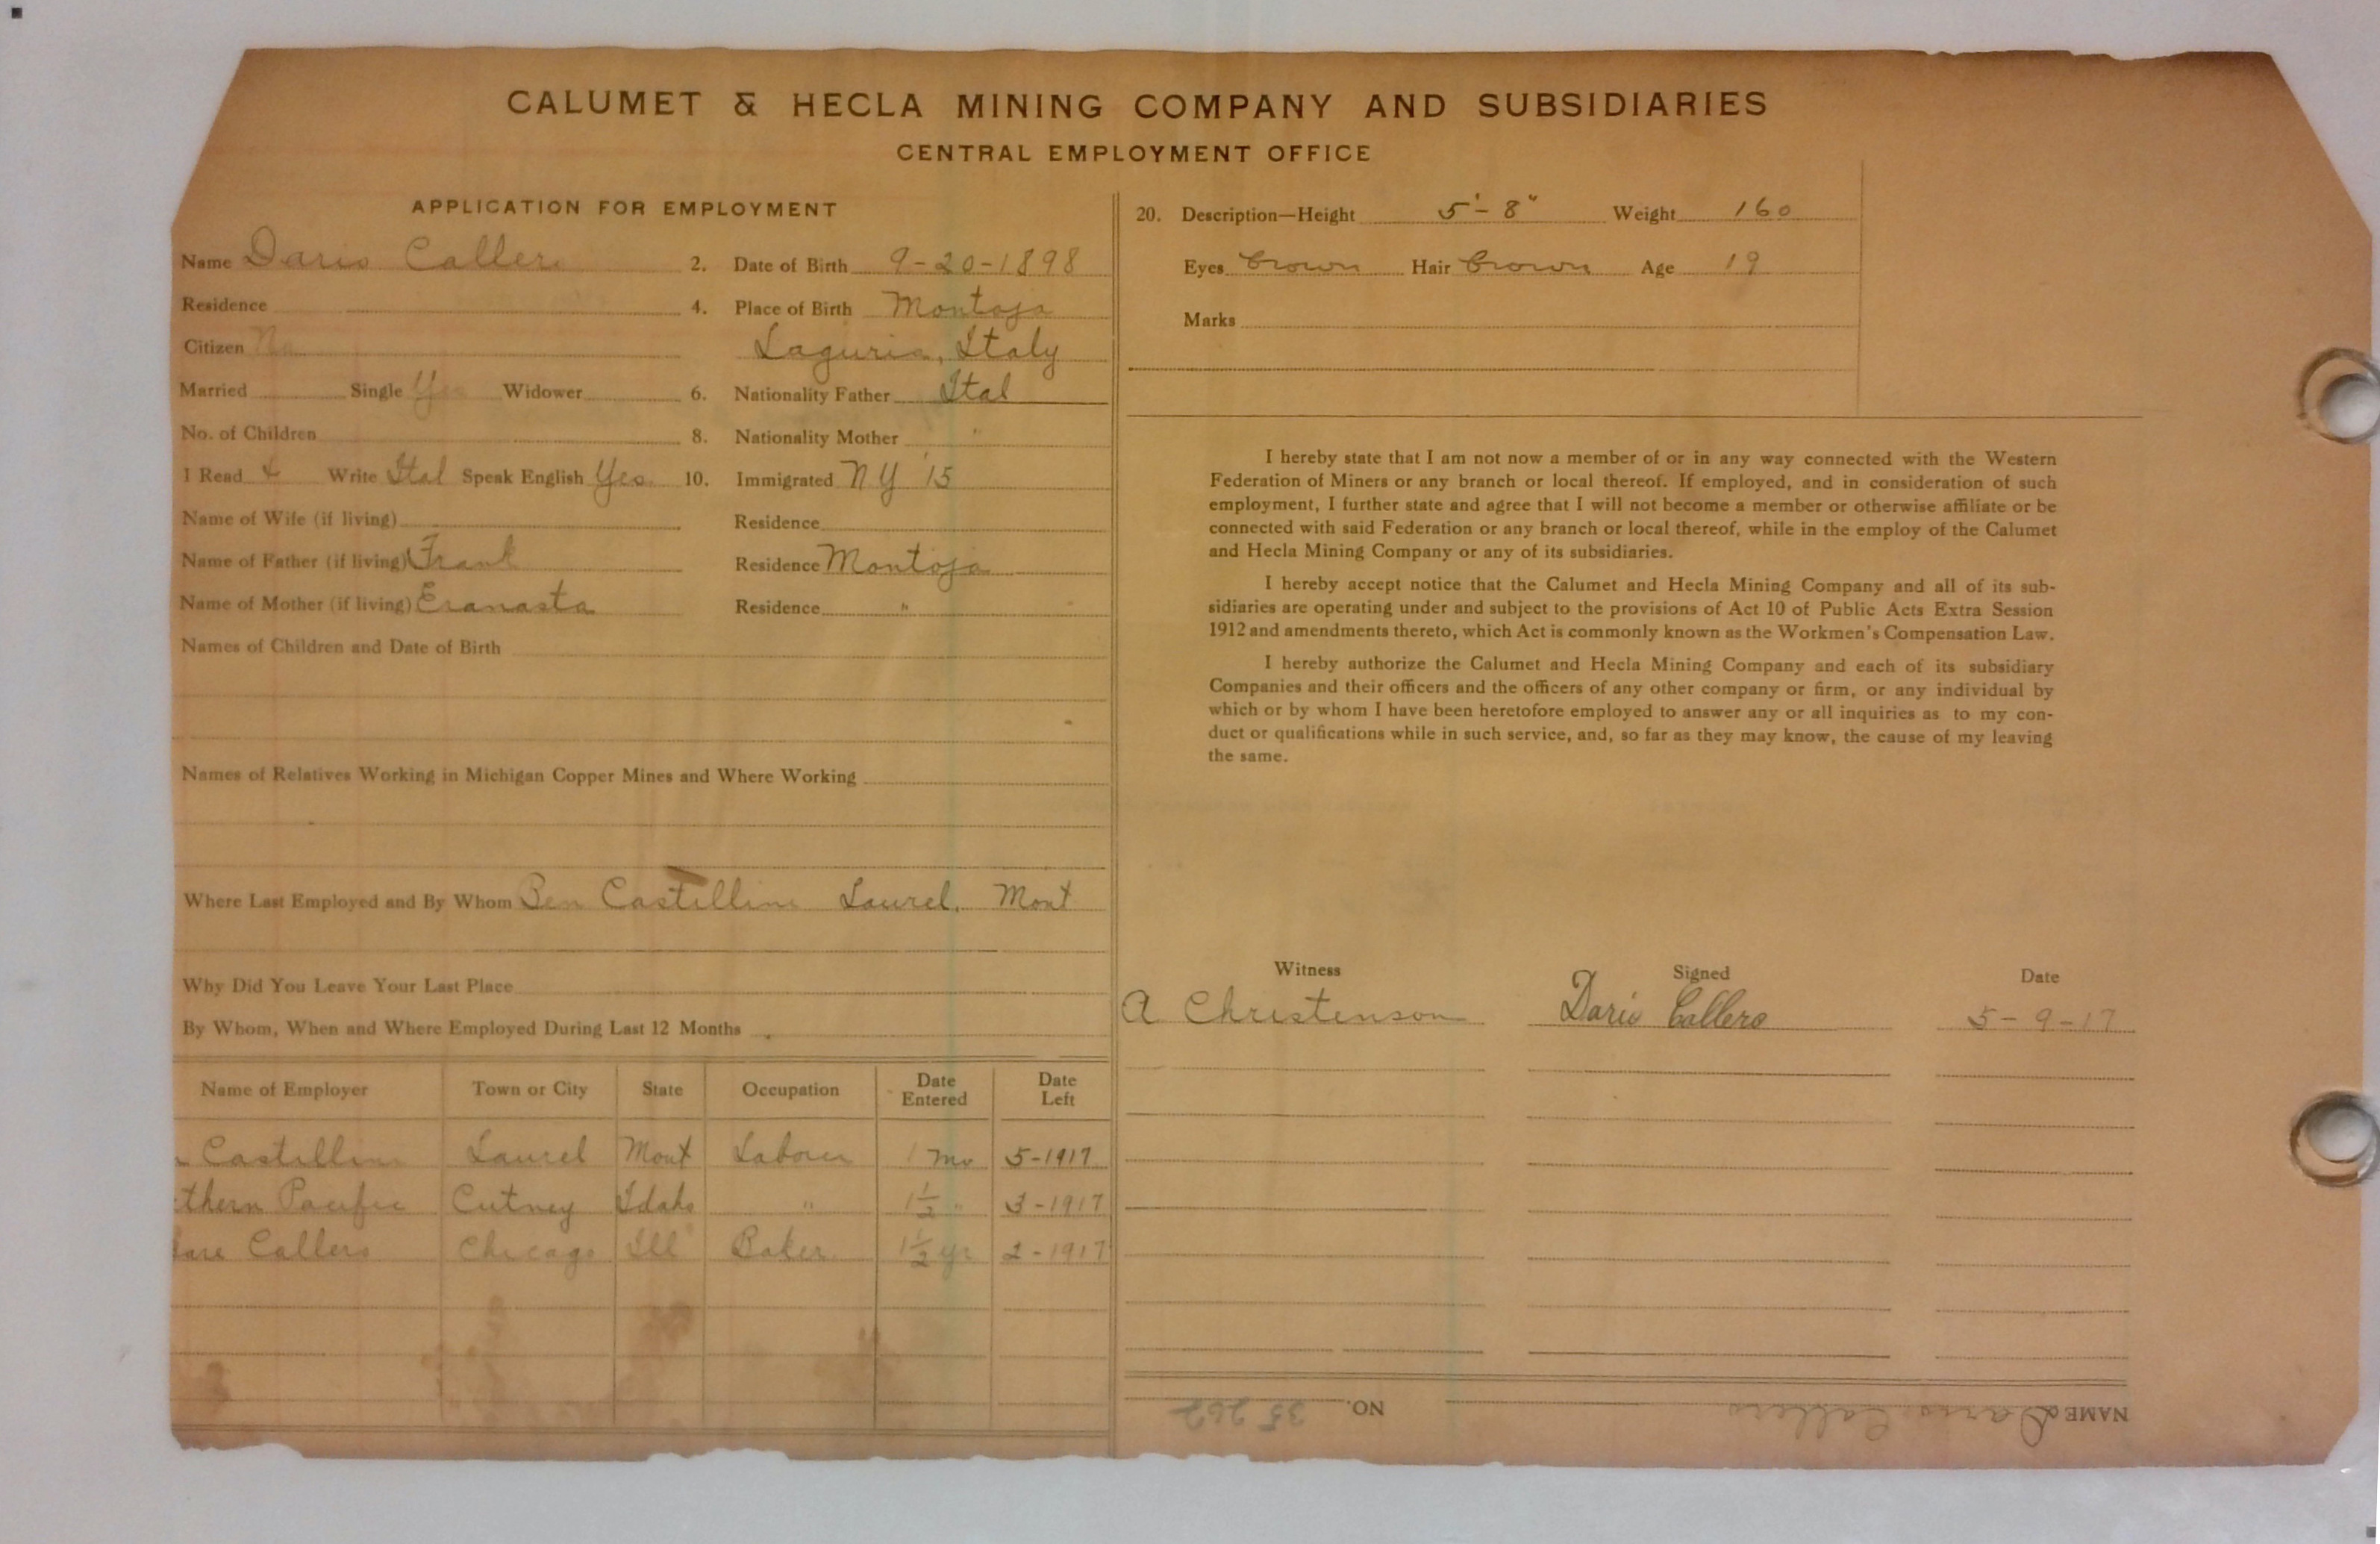 CALUMET & HECLA MINING COMPANY AND SUBSIDIARIES
CENTRAL EMPLOYMENT OFFICE
APPLICATION FOR EMPLOYMENT
Name Dario Callero 2. Date of Birth 9-20-1898
Residence 4. Place of Birth Montoja
Citizen No Laguria, Italy
Married Single Yes Widower 6. Nationality Father Ital
No. of Children 8. Nationality Mother "
I Read & Write Ital Speak English Yes 10. Immigrated N Y '15
Name of Wife (if living) Residence
Name of Father (if living) Frank Residence Montoja
Name of Mother (if living) Eranasta Residence "
Names of Children and Date of Birth
Names of Relatives Working in Michigan Copper Mines and Where Working
Where Last Employed and By Whom Ben Castellini Laurel, Mont
Why Did You Leave Your Last Place
By Whom, When and Where Employed During Last 12 Months
Name of Employer Town or City State Occupation Date Entered Date Left
Castellini Laurel Mont Laborer 1 mo 5-1917
thern Pacific Cutney Idaho " 1 1/2 " 3-1917
Callero Chicago Ill Baker 1 1/2 yr 2-1917
20. Description—Height 5'-8" Weight 160
Eyes brown Hair brown Age 19
Marks
I hereby state that I am not now a member of or in any way connected with the Western
Federation of Miners or any branch or local thereof. If employed, and in consideration of such
employment, I further state and agree that I will not become a member or otherwise affiliate or be
connected with said Federation or any branch or local thereof, while in the employ of the Calumet
and Hecla Mining Company or any of its subsidiaries.
I hereby accept notice that the Calumet and Hecla Mining Company and all of its sub-
sidiaries are operating under and subject to the provisions of Act 10 of Public Acts Extra Session
1912 and amendments thereto, which Act is commonly known as the Workmen's Compensation Law.
I hereby authorize the Calumet and Hecla Mining Company and each of its subsidiary
Companies and their officers and the officers of any other company or firm, or any individual by
which or by whom I have been heretofore employed to answer any or all inquiries as to my con-
duct or qualifications while in such service, and, so far as they may know, the cause of my leaving
the same.
Witness Signed Date
A Christenson Dario Callero 5-9-17
NAME Dario Callero NO. 35262